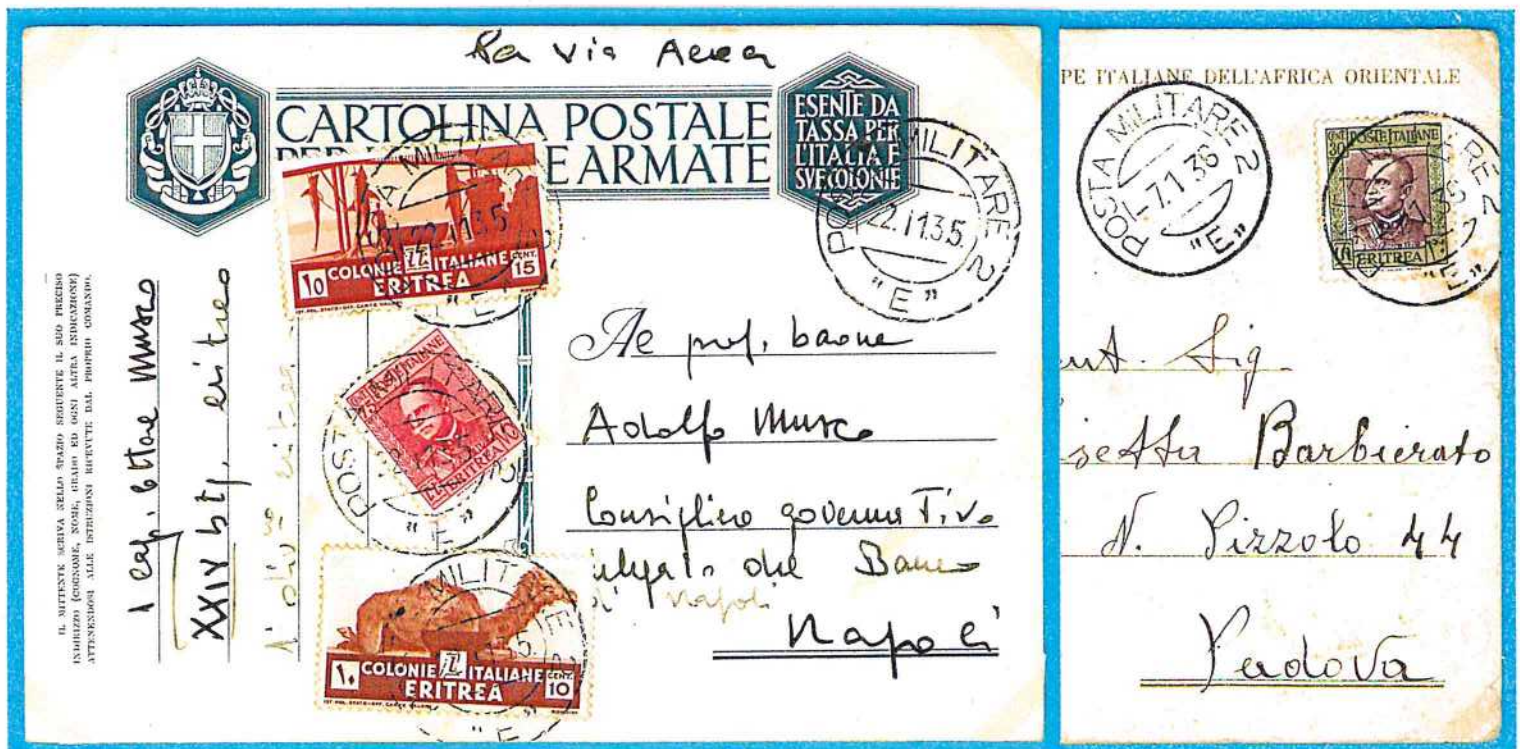 Per via Aerea
CARTOLINA POSTALE
ARMATE
ESENTE DA
TASSA PER
L'ITALIA E
SVE COLONIE
POSTA MILITARE 2
22.11.35.
"E"
15
COLONIE ITALIANE
CENT.
15
ERITREA
POSTA MILITARE
"E"
ERITREA
MILITARE
10
COLONIE ITALIANE
CENT.
10
ERITREA
"E"
IL MITTENTE SCRIVA NELLO SPAZIO SEGUENTE IL SUO PRECISO
INDIRIZZO (COGNOME, NOME, GRADO ED OGNI ALTRA INDICAZIONE)
ATTENENDOSI ALLE ISTRUZIONI RICEVUTE DAL PROPRIO COMANDO.
cap. Ettore Musco
XXIV btg. eritreo
Al prof. barone
Adolfo Musco
Consigliere governativo
del Banco
di Napoli
Napoli
PE ITALIANE DELL'AFRICA ORIENTALE
POSTA MILITARE 2
-7.1.36
"E"
POSTE ITALIANE
30
ERITREA
"E"
Sig.
Barbierato
N. Pizzolo 44
Padova